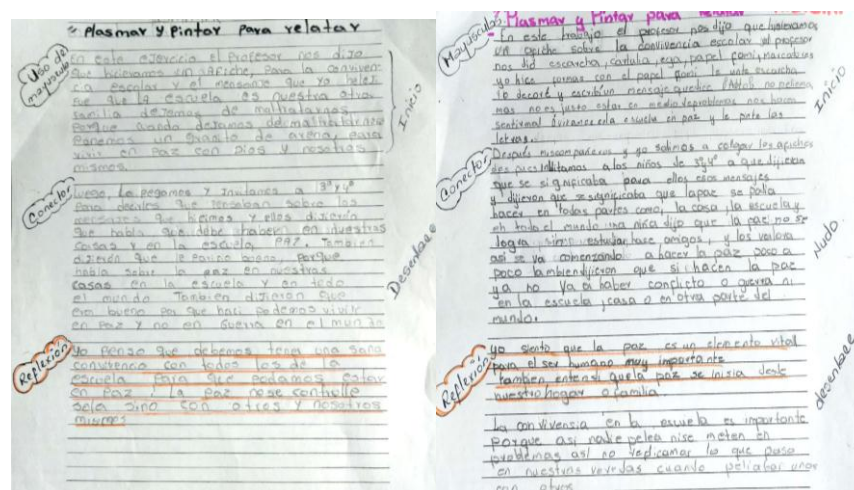 Plasmar y Pintar Para relatar
Uso de mayuscula
En este ejercicio el Profesor nos dijo
que hicieramos un afiche, Para la conviven
cia escolar y el mensaje que yo
fue que la escuela es nuestra otra
familia dejemos de maltratarnos
Porque cuando dejamos de maltratarnos
Ponemos un granito de arena, para
vivir en Paz con Dios y nosotros
mismos.
Inicio
Conector
luego, lo pegamos y invitamos a 3° y 4°
Para decirles que pensaban sobre los
mensajes que hicimos y ellos dijieron
que habla que debe haber en nuestras
casas y en la escuela, PAZ. Tambien
dijieron que le bueno, porque
habla sobre la paz en nuestras
casas en la escuela y en todo
el mundo Tambien dijieron que
era bueno por que haci podemos vivir
en Paz y no en Guerra en el mundo
Desenlace
Reflexión
Yo Pienso que debemos tener una sana
convivencia con todos los de la
escuela Para que podamos estar
en Paz. la Paz no se
sola sino con otros y nosotros
mismos
Plasmar y Pintar para relatar
Mayuscula
En este trabajo el profesor nos dijo que hicieramos
un afiche sobre la convivencia escolar el profesor
nos dió escarcha, cartulina, ega, papel fomi, marcadores
yo hice formas con el papel fomi le unte escarcha
lo decoré y escribí un mensaje que dice
mas no es justo estar en medio de problemas nos hacen
sentir mal la escuela en paz y le pinte las
letras.
Inicio
Conector
Después mis compañeros y yo salimos a colgar los afiches
despues invitamos a los niños de 3° y 4° a que dijieran
que se significaba para ellos esos mensajes
y dijieron que significaba que la paz se podia
hacer en todas partes como, la casa, la escuela y
en todo el mundo una niña dijo que la paz no se
logra sino estudiar, hacer amigos, y los valora
asi se va comenzando a hacer la paz poco a
poco tambien dijieron que si hacen la paz
ya no va a haber conflicto o guerra ni
en la escuela, casa o en otra parte del
mundo.
Nudo
Reflexión
yo siento que la paz es un elemento vital
para el ser humano muy importante
tambien entendi que la paz se inisia desde
nuestro hogar o familia.
desenlace
La convivensia en la escuela es importante
porque asi nadie pelea ni se meten en
problemas asi no replicamos lo que pasa
en nuestras veredas cuando unos
con otros